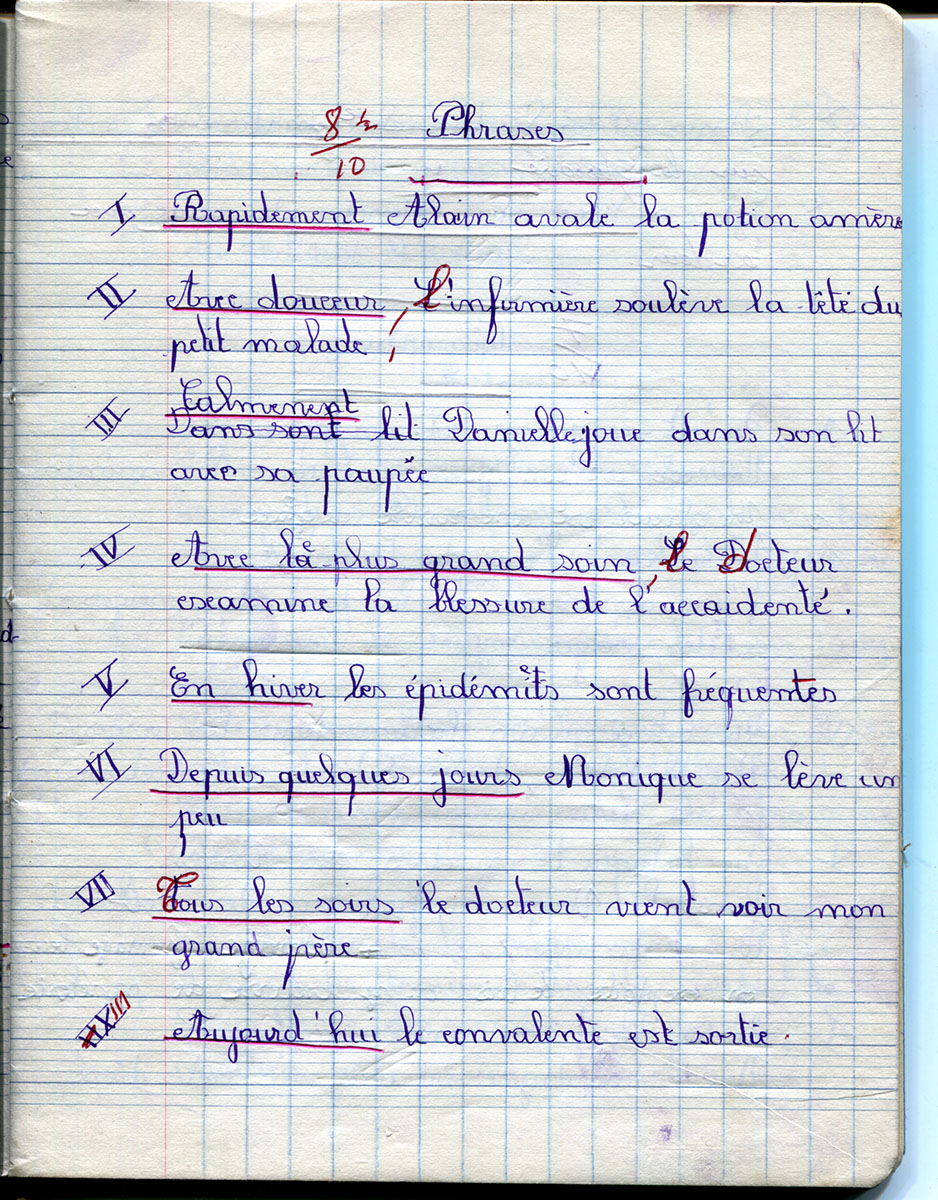 8 ½ Phrases
10
I Rapidement Alain avale la potion amère
II Avec douceur, l'infirmière soulève la têté du
petit malade,
Calmement
III Dans sont lit Danielle joue dans son lit
avec sa paupée
IV Avec le plus grand soin, le Docteur
escamine la blessure de l'accaidenté.
V En hiver les épidémits sont fréquentes
VI Depuis quelques jours Monique se lève un
peu
VII Tous les soirs le docteur vient voir mon
grand père
Aujourd'hui le convalente est sortie.